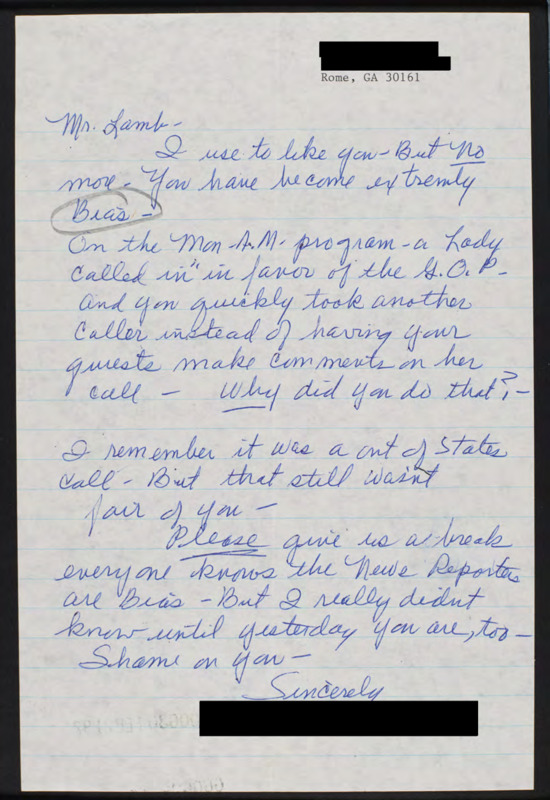 Rome, GA 30161
Mr. Lamb-
I use to like you - But No
more - You have become extremly
Bias -
On the Mon A.M. program - a Lady
called in" in favor of the G.O.P. -
and you quickly took another
caller instead of having your
guests make comments on her
call - Why did you do that? -
I remember it was a out of States
call - But that still wasn't
fair of you -
Please give us a break
everyone knows the News Reporters
are Bias - But I really didnt
know until yesterday you are, too -
Shame on you -
Sincerely